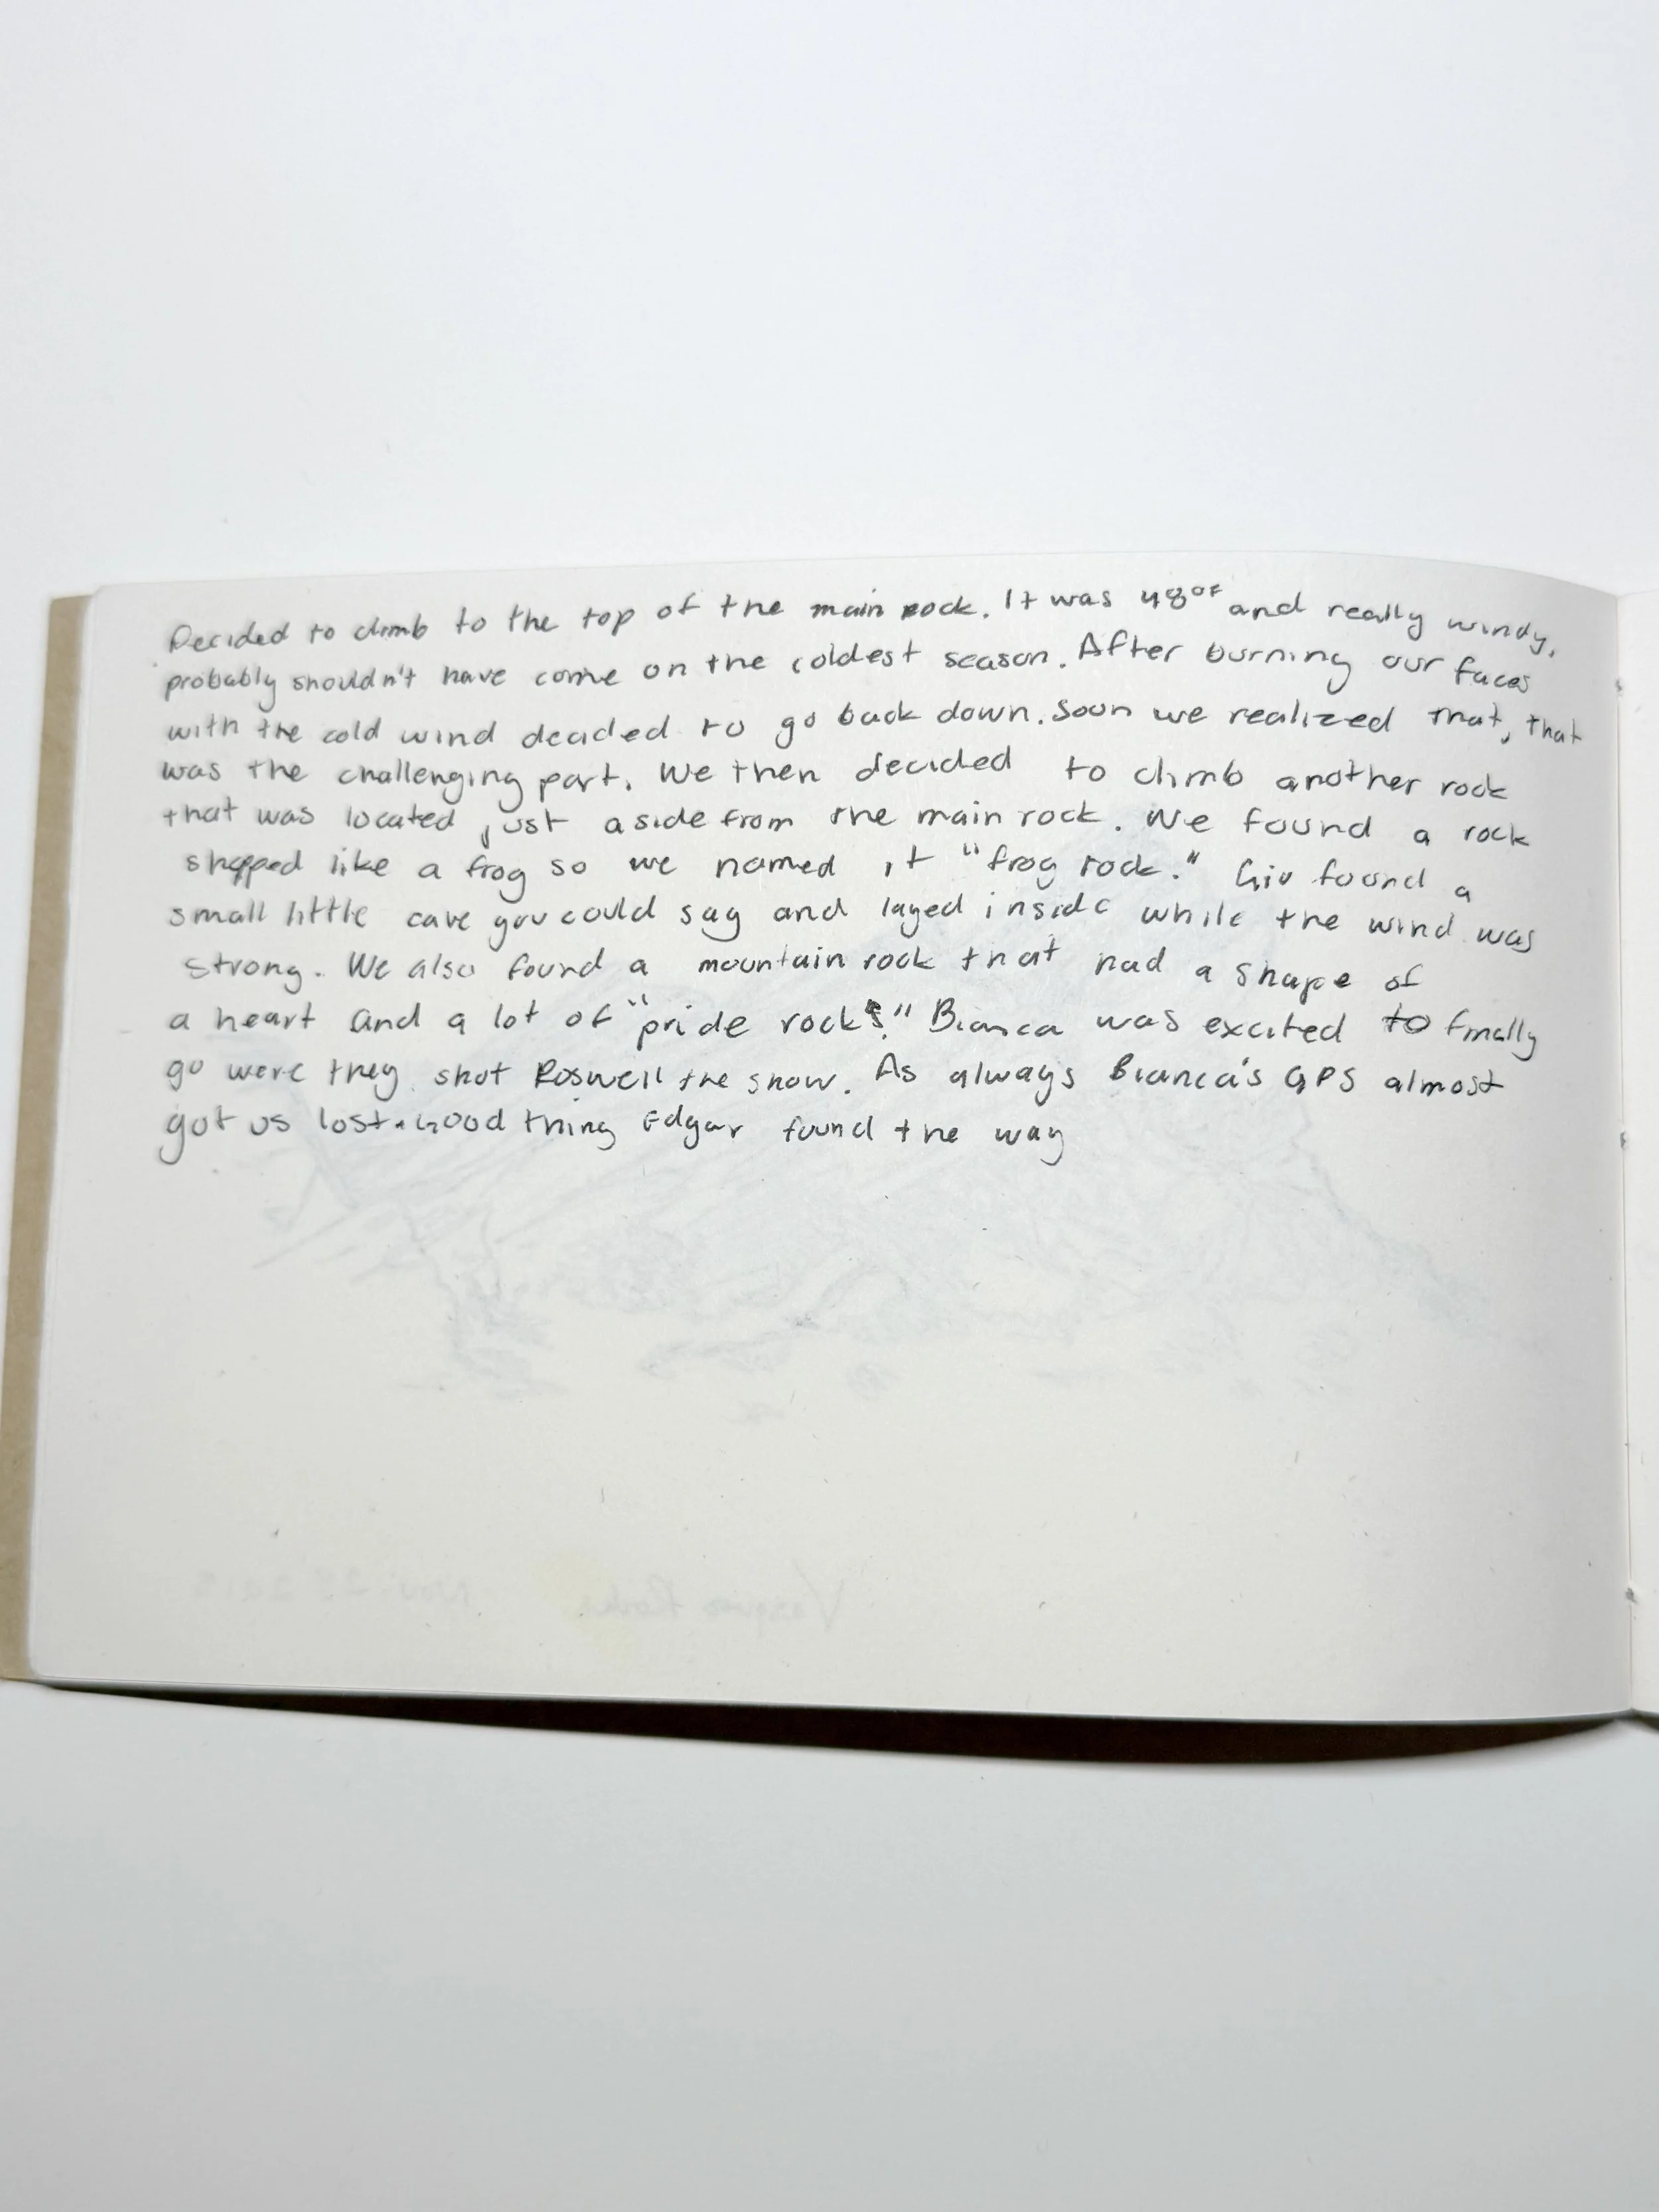 Decided to climb to the top of the main rock. It was 48°F and really windy,
probably shouldn't have come on the coldest season. After burning our faces
with the cold wind decided to go back down. Soon we realized that, that
was the challenging part. We then decided to climb another rock
that was located just aside from the main rock. We found a rock
shapped like a frog so we named it "frog rock." Giv found a
small little cave you could say and layed inside while the wind was
strong. We also found a mountain rock that had a shape of
a heart and a lot of "pride rocks." Bianca was excited to finally
go were they shot Roswell the show. As always Bianca's GPS almost
got us lost. Good thing Edgar found the way
Vasquez Rocks